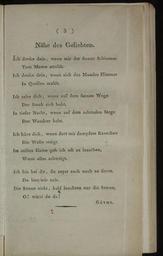 ( 5 )
Nähe des Geliebten.
Ich denke dein, wenn mir der Sonne Schimmer
Vom Meere strahlt;
Ich denke dein, wenn sich des Mondes Flimmer
In Quellen mahlt.
Ich sehe dich, wenn auf dem fernen Wege
Der Staub sich hebt;
In tiefer Nacht, wenn auf dem schmalen Stege
Der Wandrer bebt.
Ich höre dich, wenn dort mit dumpfem Rauschen
Die Welle steigt.
Im stillen Haine geh ich oft zu lauschen,
Wenn alles schweigt.
Ich bin bei dir, du seyst auch noch so ferne,
Du bist mir nah!
Die Sonne sinkt, bald leuchten mir die Sterne.
O! wärst du da!